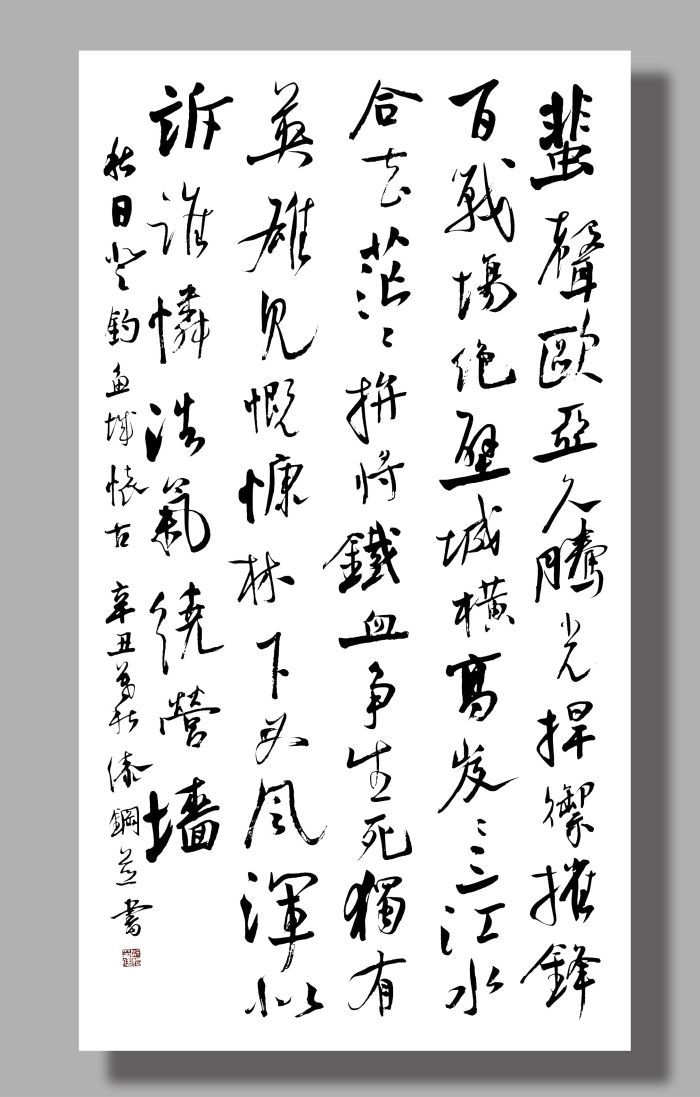 蜚聲歐亞久騰光捍禦摧鋒
百戰場絕壁城橫高岌〻三江水
合去茫〻拚將鐵血爭生死獨有
英雄見慨慷林下風渾似
訴誰憐浩氣繞營墻
秋日登釣魚城懷古 辛丑秋 鋼並書